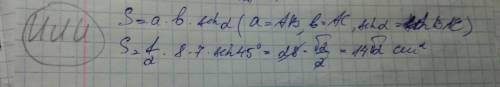 или
S = a · b · sin α (a = AB, b = AC, sin α = sin BAC)
S = 1/2 · 8 · 7 · sin 45° = 28 · √2/2 = 14√2 cm²